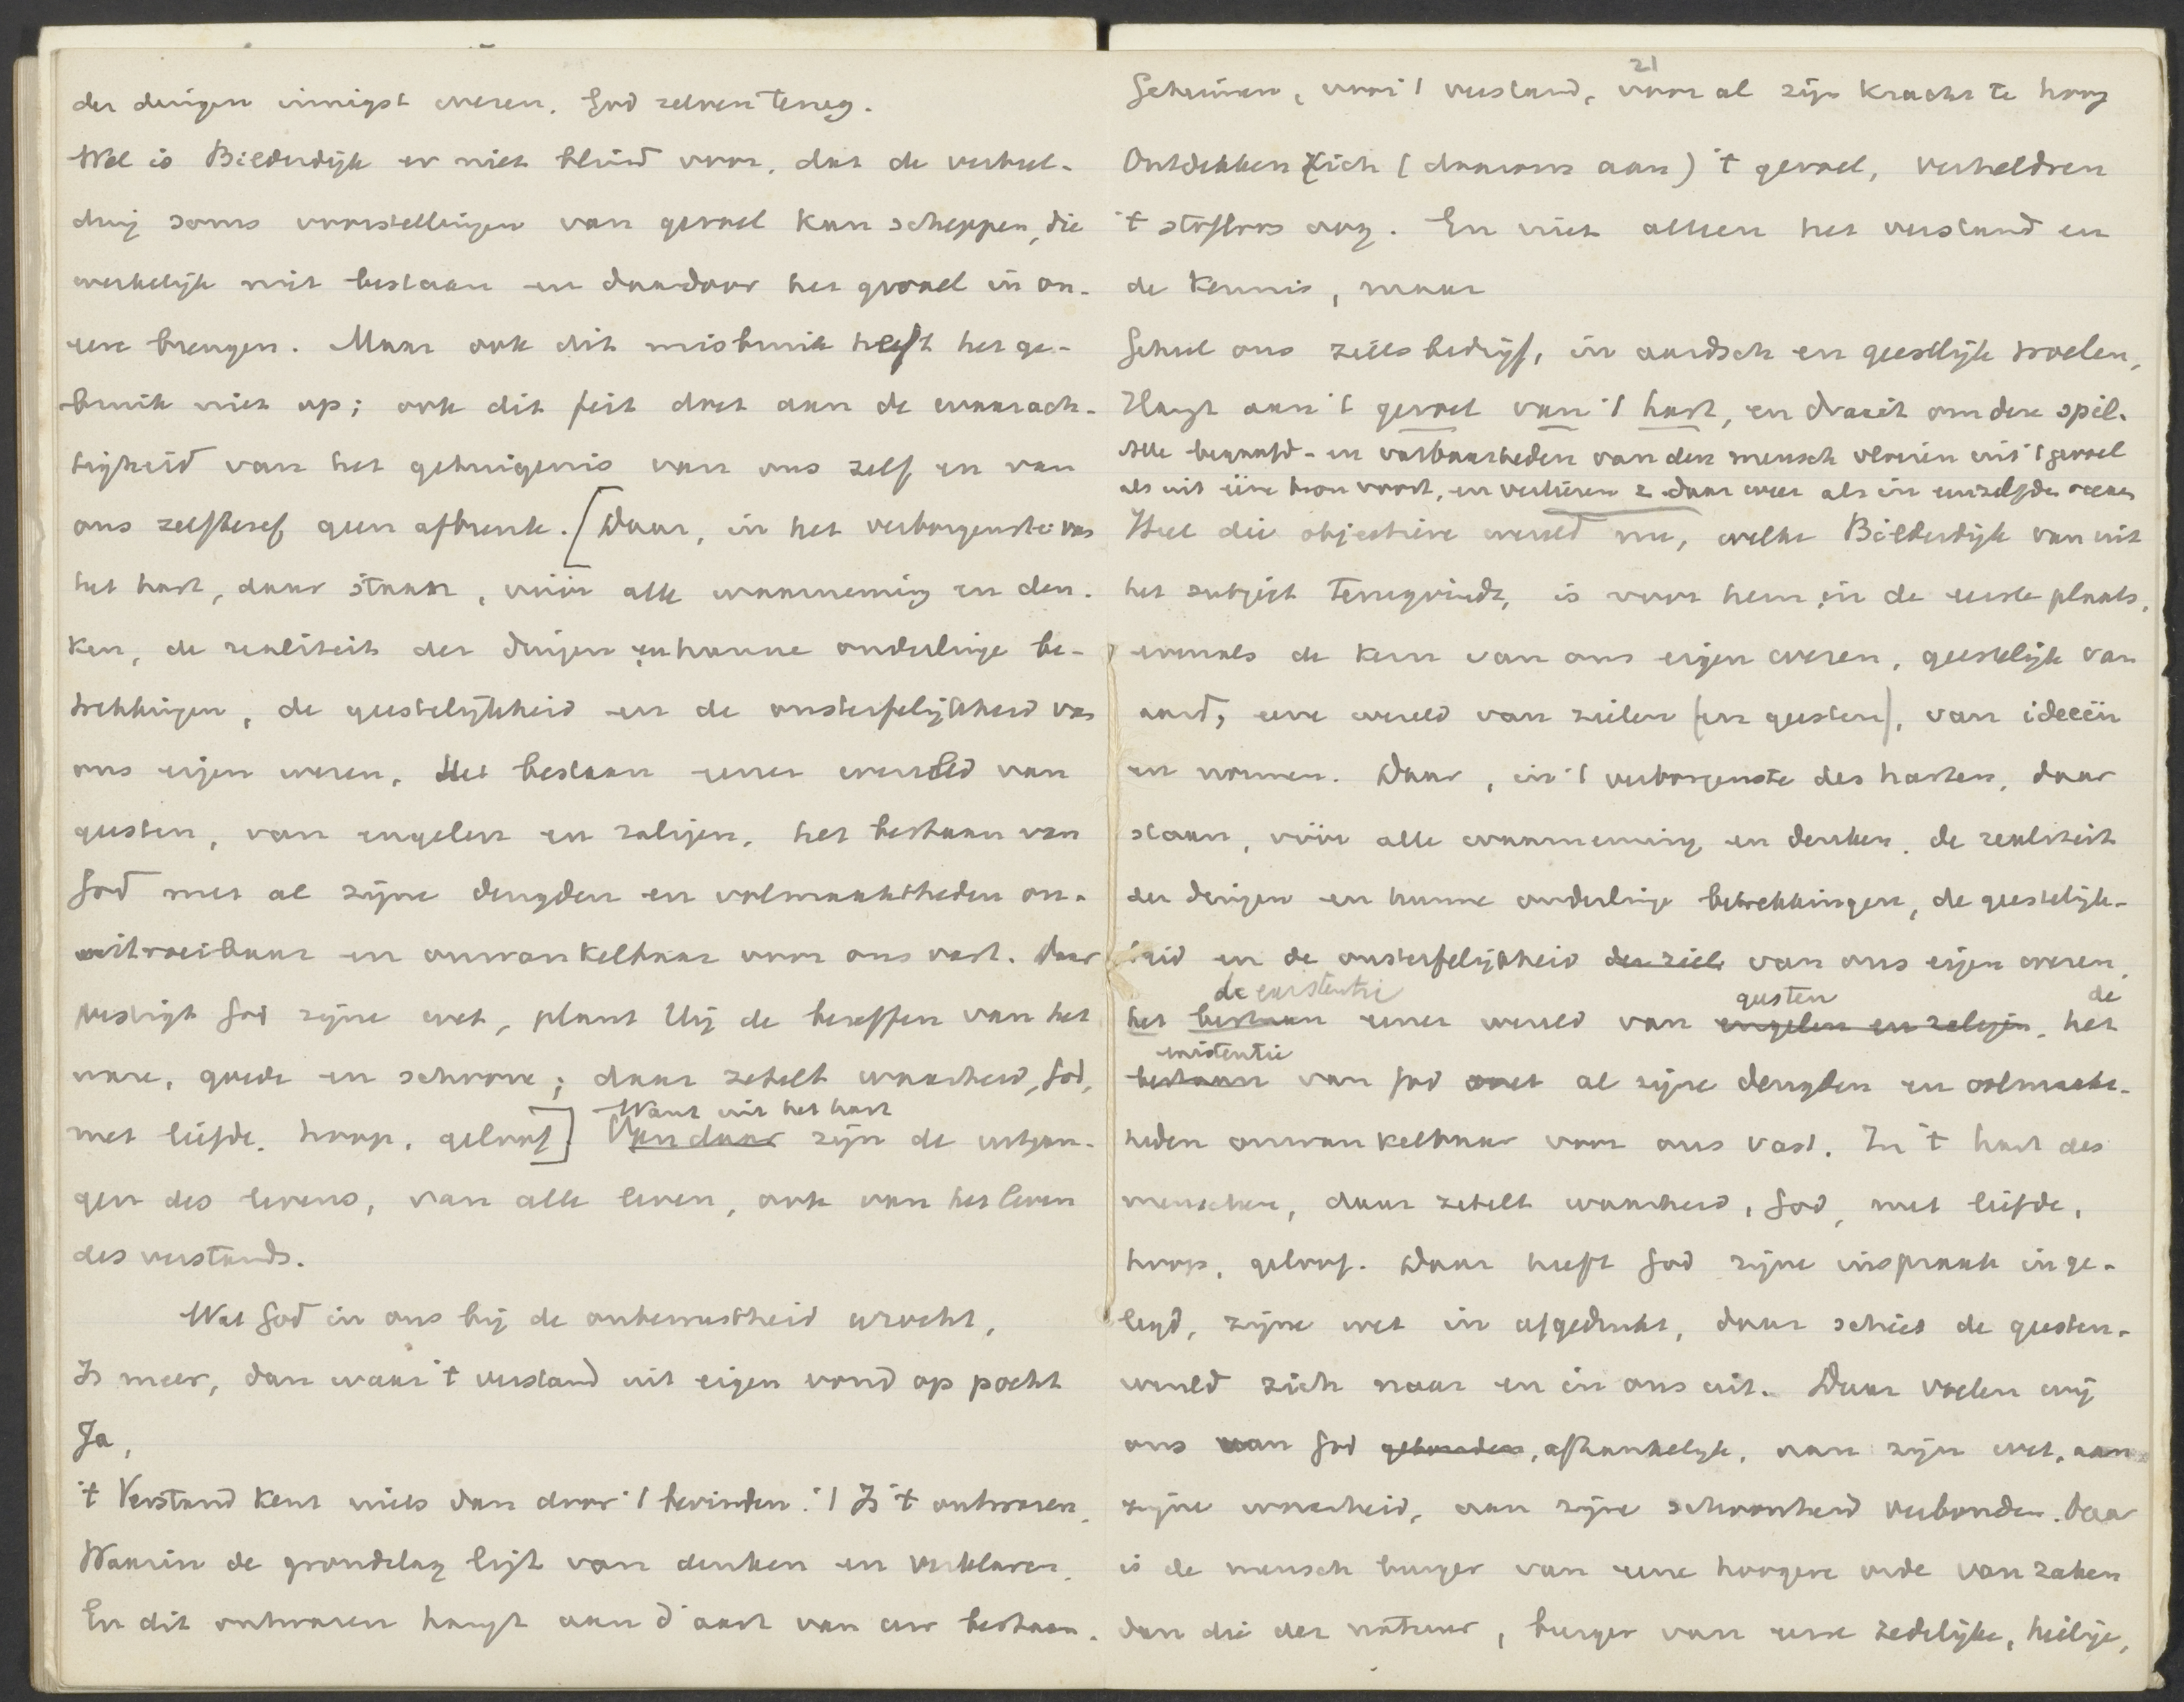 der dingen innigst wezen, God zelven terug.
Wel is Bilderdijk er niet blind voor, dat de verbeel-
ding soms voorstellingen van gevoel kan scheppen, die
werkelijk niet bestaan en daardoor het gevoel in on-
eere brengen. Maar ook dit misbruik heft het ge-
bruik niet op; ook dit feit doet aan de waarach-
tigheid van het getuigenis van ons zelf en van
ons zelfbesef geen afbreuk. [Daar, in het verborgenste van
het hart, daar staan, vóór alle waarneming en den-
ken, de realiteit der dingen en hunne onderlinge be-
trekkingen, de geestelijkheid en de onsterfelijkheid van
ons eigen wezen, het bestaan eener wereld van
geesten, van engelen en zaligen, het bestaan van
God met al zijne deugden en volmaaktheden on-
uitroeibaar en onwankelbaar voor ons vast. Daar
vestigt God zijne wet, plant Hij de beseffen van het
ware, goede en schoone; daar zetelt waarheid, God,
met liefde, hoop, geloof]. Want uit het hart
Van daar zijn de uitgan-
gen des levens, van alle leven, ook van het leven
des verstands.
Wat God in ons bij de onbewustheid wrocht,
Is meer, dan waar 't verstand uit eigen vond op pocht
Ja,
't Verstand kent niets dan door 't bevinden: 't Is 't ontwaren,
Waarin de grondslag ligt van denken en verklaren.
En dit ontwaren hangt aan d'aart van uw bestaan.
21
Geheimen, voor 't verstand, voor al zijn kracht te hoog
Ontdekken zich (daarom aan) 't gevoel, verheldren
't stofloos oog. En niet alleen het verstand en
de kennis, maar
Geheel ons zielsbedrijf, in aardsch en geestlijk woelen,
Hangt aan 't gevoel van 't hart, en draait om deze spil.
Alle begaafd- en vatbaarheden van den mensch vloeien uit 't gevoel
als uit ééne bron voort, en verliezen z. daar weer als in eenzelfden oceaan
Heel die objectieve wereld nu, welke Bilderdijk van uit
het subject terugvindt, is voor hem in de eerste plaats,
evenals de kern van ons eigen wezen, geestelijk van
aard, eene wereld van zielen (en geesten), van ideeën
en normen. Daar, in 't verborgenste des harten, daar
staan, vóór alle waarneming en denken, de realiteit
der dingen en hunne onderlinge betrekkingen, de geestelijk-
heid en de onsterfelijkheid der ziel van ons eigen wezen,
de existentie geesten de
het bestaan eener wereld van engelen en zaligen, het
existentie
bestaan van God met al zijne deugden en volmaakt-
heden onwankelbaar voor ons vast. In 't hart des
menschen, daar zetelt waarheid, God, met liefde,
hoop, geloof. Daar heeft God zijne inspraak inge-
legd, zijne wet in afgedrukt, daar schiet de geesten-
wereld zich naar en in ons uit. Daar voelen wij
ons van God gebonden, afhankelijk, aan zijn wet, aan
zijne waarheid, aan zijne schoonheid verbonden. Daar
is de mensch burger van eene hoogere orde van zaken
dan die der natuur, burger van eene zedelijke, heilige,